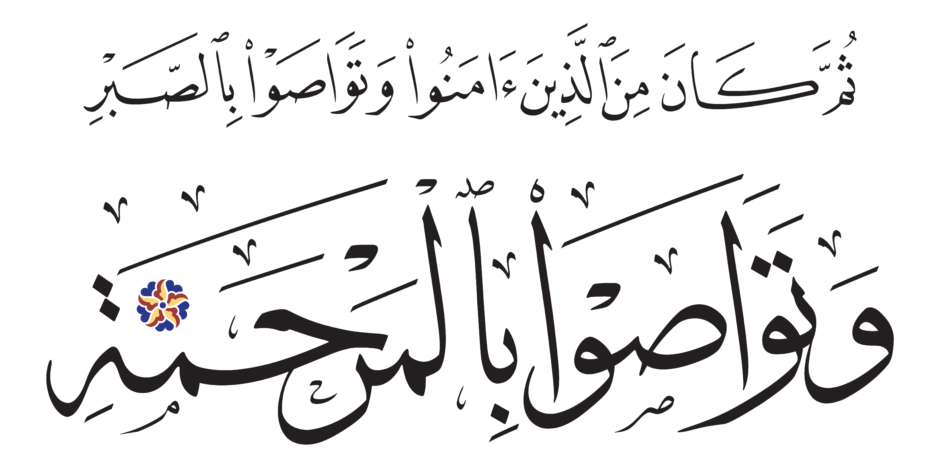 ثُمَّ كَانَ مِنَ ٱلَّذِينَ ءَامَنُوا۟ وَتَوَاصَوْا۟ بِٱلصَّبْرِ
وَتَوَاصَوْا۟ بِٱلْمَرْحَمَةِ